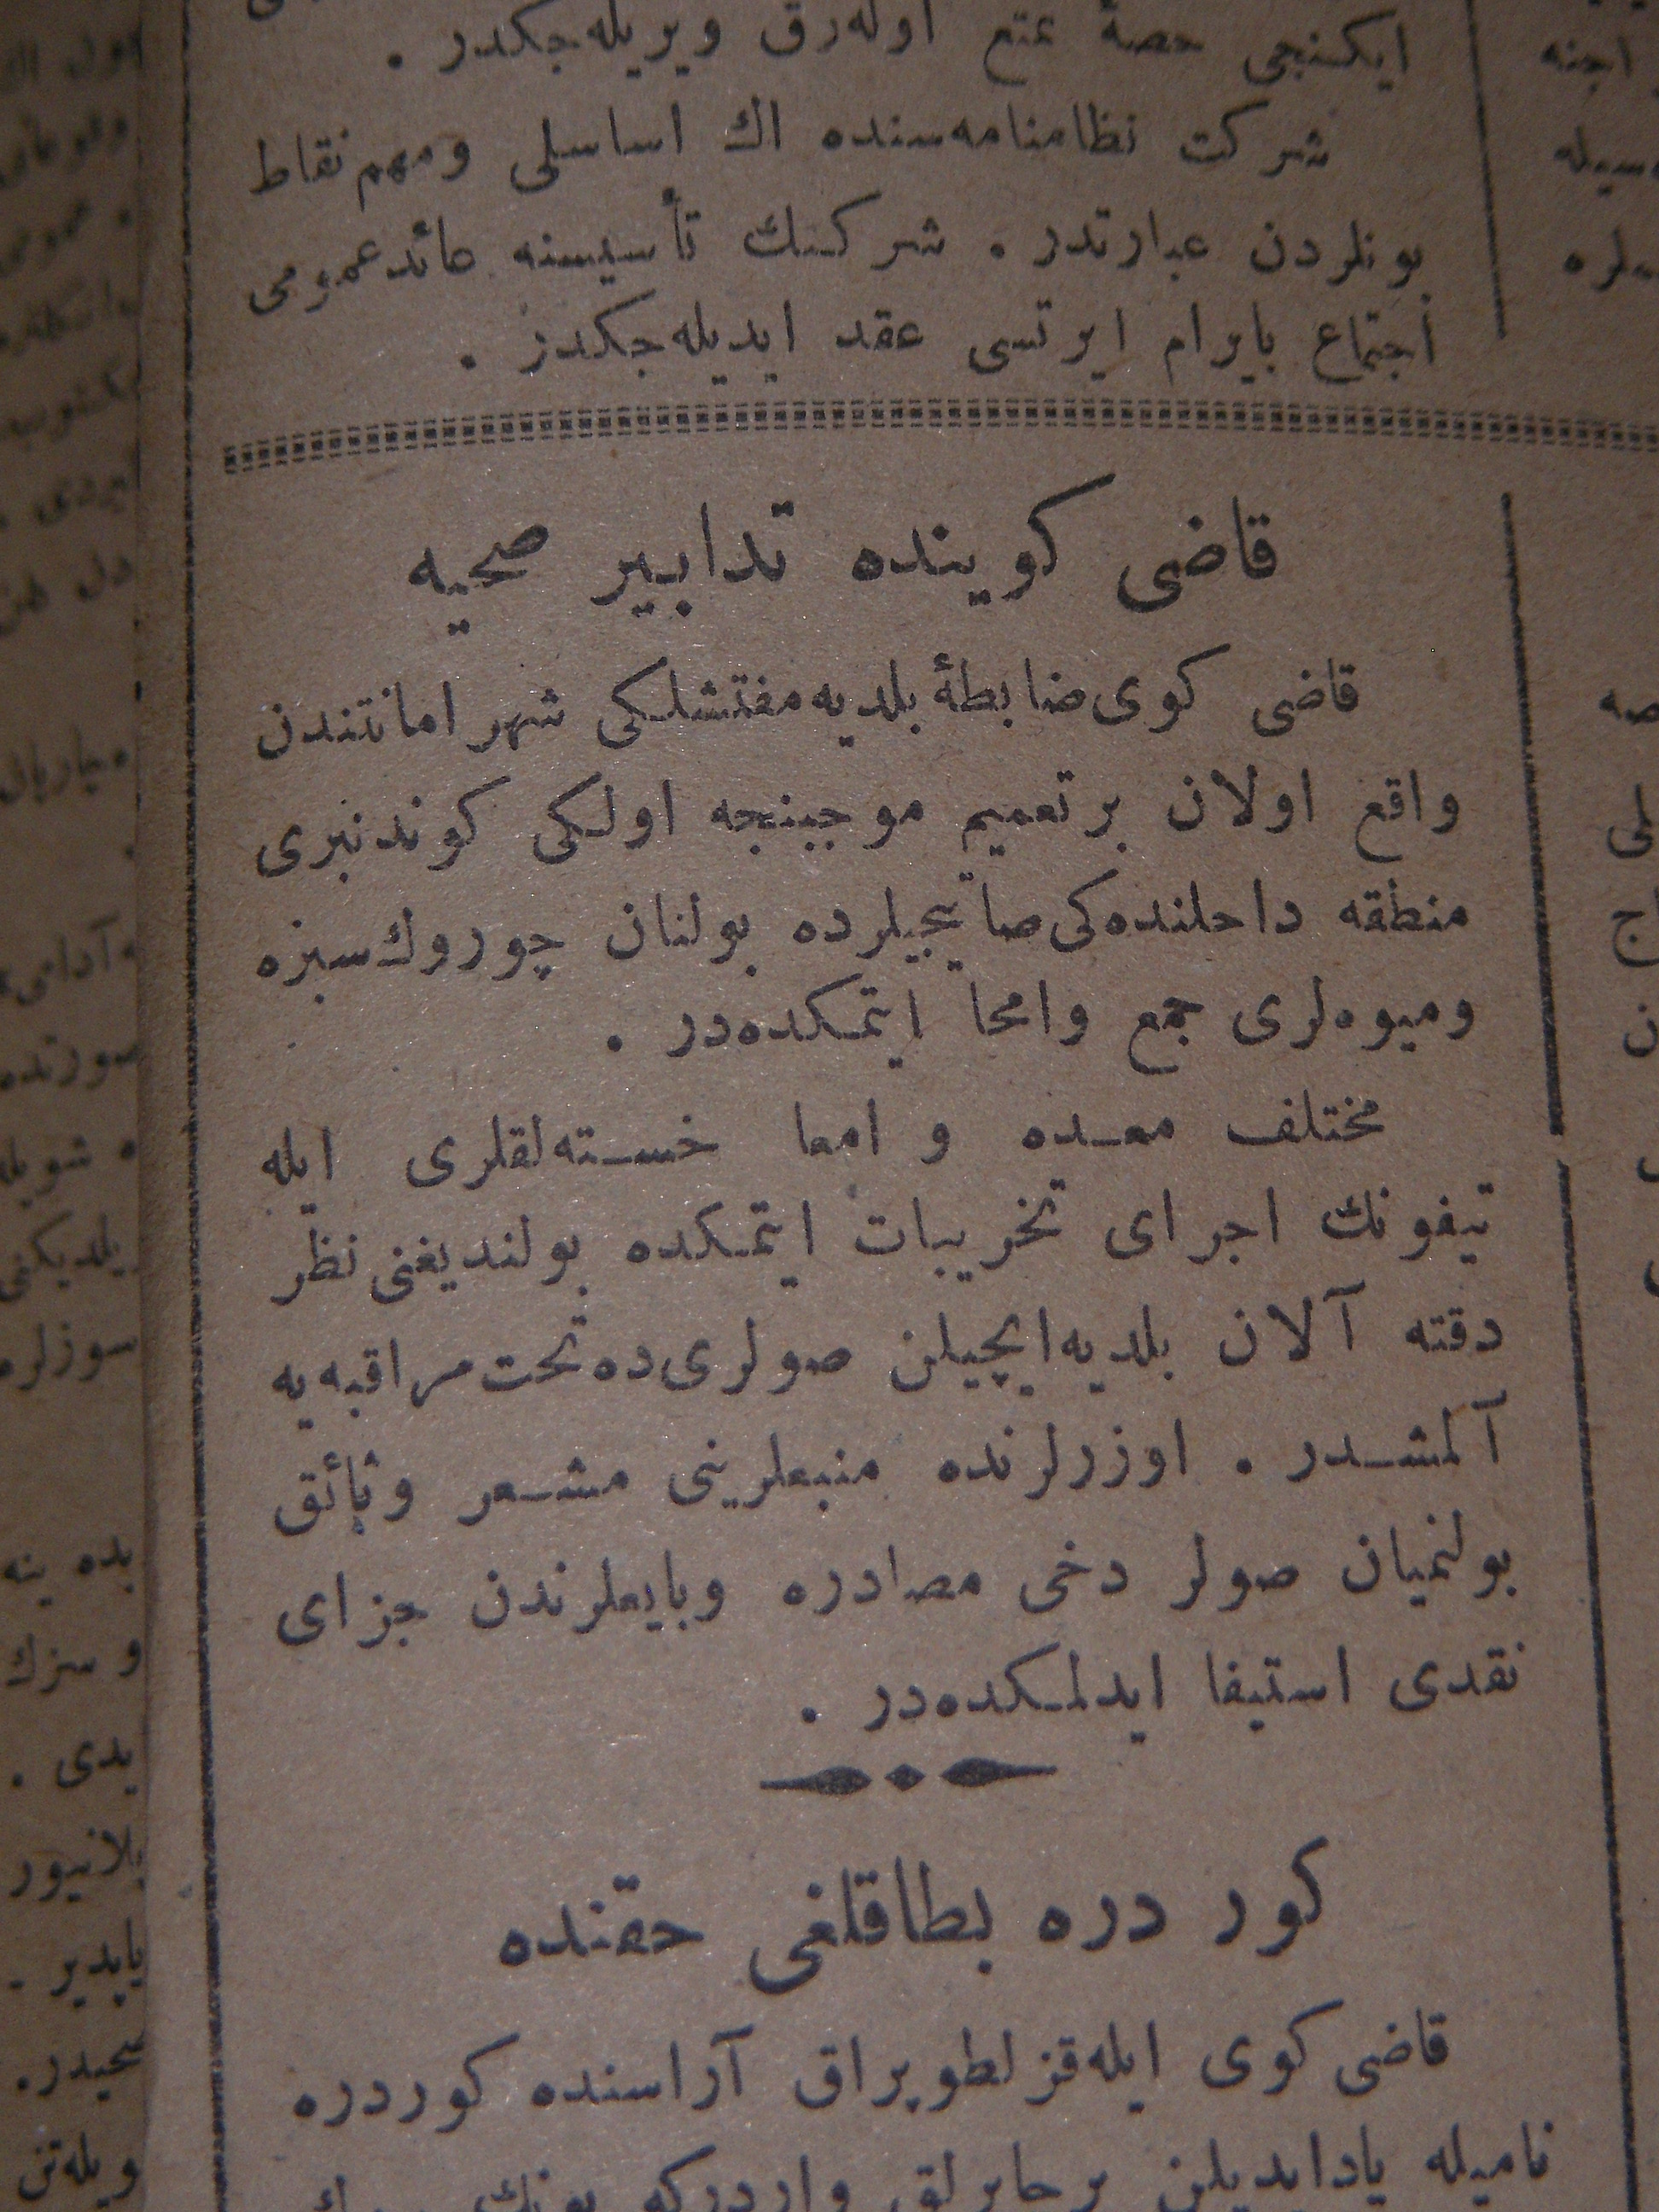 ایکنجی حصهٔ تمتع اوله‌رق ویریله‌جکدر .
شرکت نظامنامه‌سنده اك اساسلی ومهم نقاط
بونلردن عبارتدر . شرکتك تأسیسنه عائد عمومی
اجتماع بایرام ایرتسی عقد ایدیله‌جکدر .
قاضی کوینده تدابیر صحیه
قاضی کوی ضابطهٔ بلدیه مفتشلکی شهر امانتندن
واقع اولان بر تعمیم موجبنجه اولکی کوندنبری
منطقه داخلنده‌کی صاتیجیلرده بولنان چوروك سبزه
ومیوه‌لری جمع وامحا ایتمکده‌در .
مختلف معده و امعا خسته‌لقلری ایله
تیفونك اجرای تخریبات ایتمکده بولندیغنی نظر
دقته آلان بلدیه ایچیلن صولری‌ده تحت مراقبه‌یه
آلمشدر . اوزرلرنده منبعلرینی مشعر وثائق
بولنمیان صولر دخی مصادره وبایعلرندن جزای
نقدی استیفا ایدلمکده‌در .
کور دره بطاقلغی حقنده
قاضی کوی ایله قزلطوپراق آراسنده کوردره
نامیله یادایدیلن بر چایرلق واردرکه بونك
اجنه
سیله
ملره
صه
لی
اج
ن
صورتنده
ه شویله
یلدیکنی
سوزلره
بده ینه
و سزك
یدی .
پلانیور
یاپدیر .
ویله‌تن